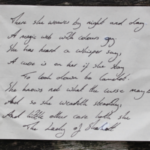 There she weaves by night and day
A magic web with colours gay
She has heard a whisper say,
A curse is on her if she stay
To look down to Camelot.
She knows not what the curse may be
And so she weaveth steadily,
And little other care hath she
The Lady of Shalott